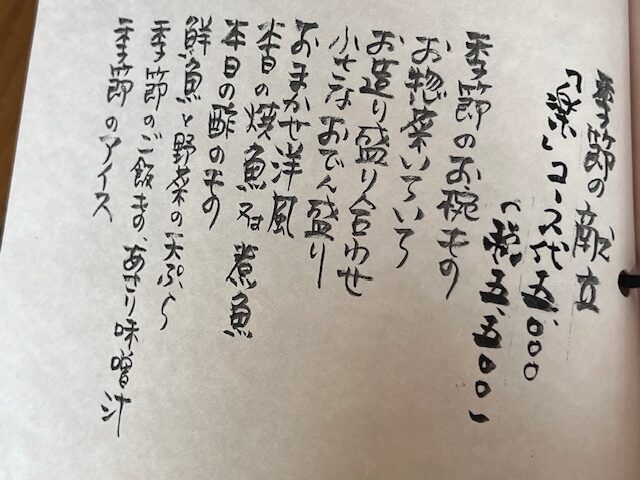 季節の献立
「楽」コース代五、〇〇〇
（税五、五〇〇）
季節のお椀もの
お惣菜いろいろ
お造り盛り合わせ
小さなおでん盛り
おまかせ洋風
本日の焼魚又は煮魚
本日の酢のもの
鮮魚と野菜の天ぷら
季節のご飯もの、あさり味噌汁
季節のアイス